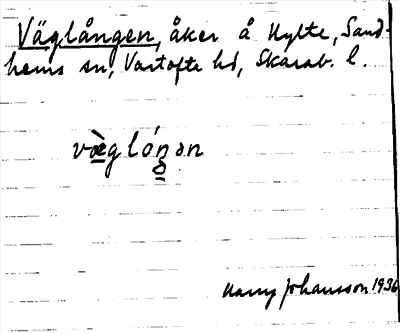 Väglången, åker å Hylte, Sand-
hems sn, Vartofte hd, Skarab. l.
væ̀glóŋən
Harry Johansson 1936